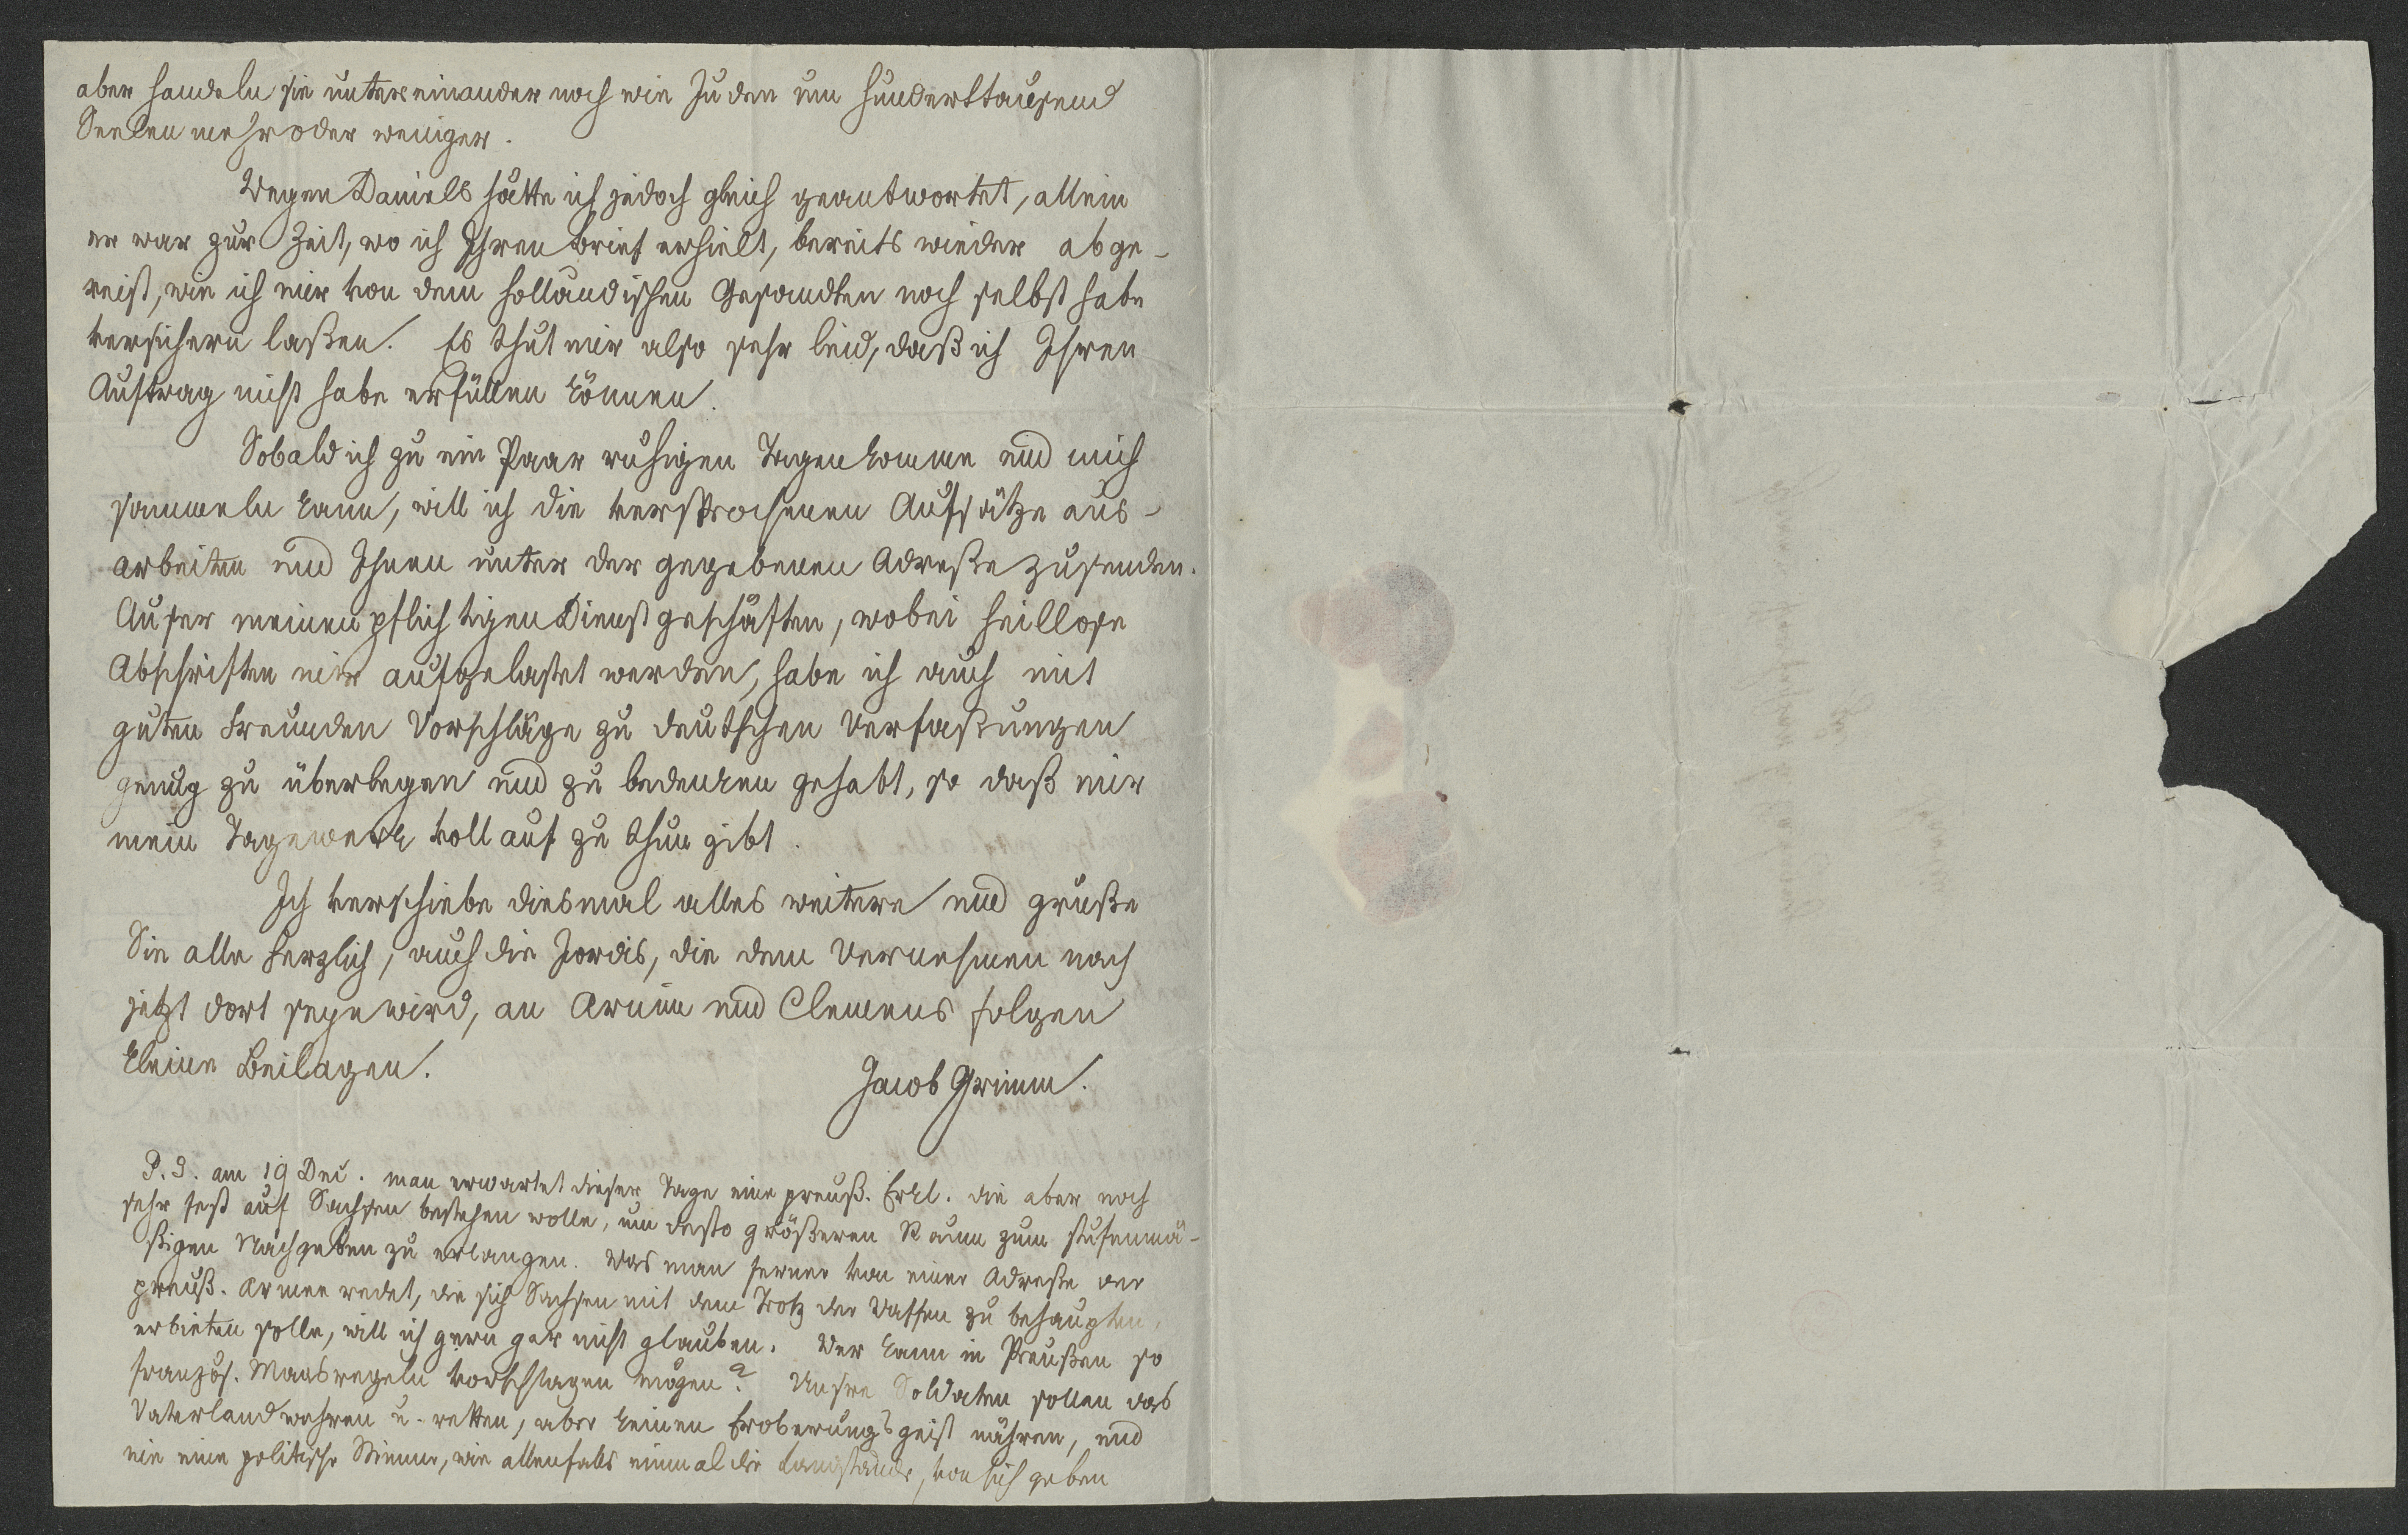 aber handeln sie untereinander noch wie Juden um hunderttausend
Seelen mehr oder weniger.
Wegen Daniels hätte ich jedoch gleich geantwortet, allein
er war zur Zeit, wo ich Ihren brief erhielt, bereits wieder abge-
reist, wie ich mir von dem holländischen Gesandten noch selbst habe
versichern laßen. Es thut mir also sehr leid, daß ich Ihren
Auftrag nicht habe erfüllen können.
Sobald ich zu ein Paar ruhigen Tagen komme und mich
sammeln kann, will ich die versprochenen Aufsätze aus-
arbeiten und Ihnen unter der gegebenen Adreße zusenden.
Auser meinen pflichtigen Dienstgeschäften, wobei heillose
Abschriften mir aufgelastet werden, habe ich auch mit
guten Freunden Vorschläge zu deutschen Verfaßungen
genug zu überlegen und zu bedenken gehabt, so daß mir
mein Tagewerk voll auf zu thun gibt.
Ich verschiebe diesmal alles weitere und grüße
Sie alle herzlich, auch die Jordis, die dem Vernehmen nach
jetzt dort seyn wird, an Arnim und Clemens folgen
kleine Beilagen.
Jacob Grimm.
P. S. am 19 Dec. man erwartet dieser Tage eine preuß. Erkl. die aber noch
sehr fest auf Sachsen bestehen wolle, um desto größeren Raum zum stufenmä-
ßigen Nachgeben zu erlangen. Was man ferner von einer Adreße der
preuß. Armee redet, die sich Sachsen mit dem Trotz der Waffen zu behaupten,
erbieten solle, will ich gern gar nicht glauben. Wer kann in Preußen so
französ. Maasregeln vorschlagen mögen? Unsre Soldaten sollen das
Vaterland wahren u. retten, aber keinen Eroberungsgeist nähren, und
nie eine politische Stimme, wie allenfalls einmal die Landstände, von sich geben